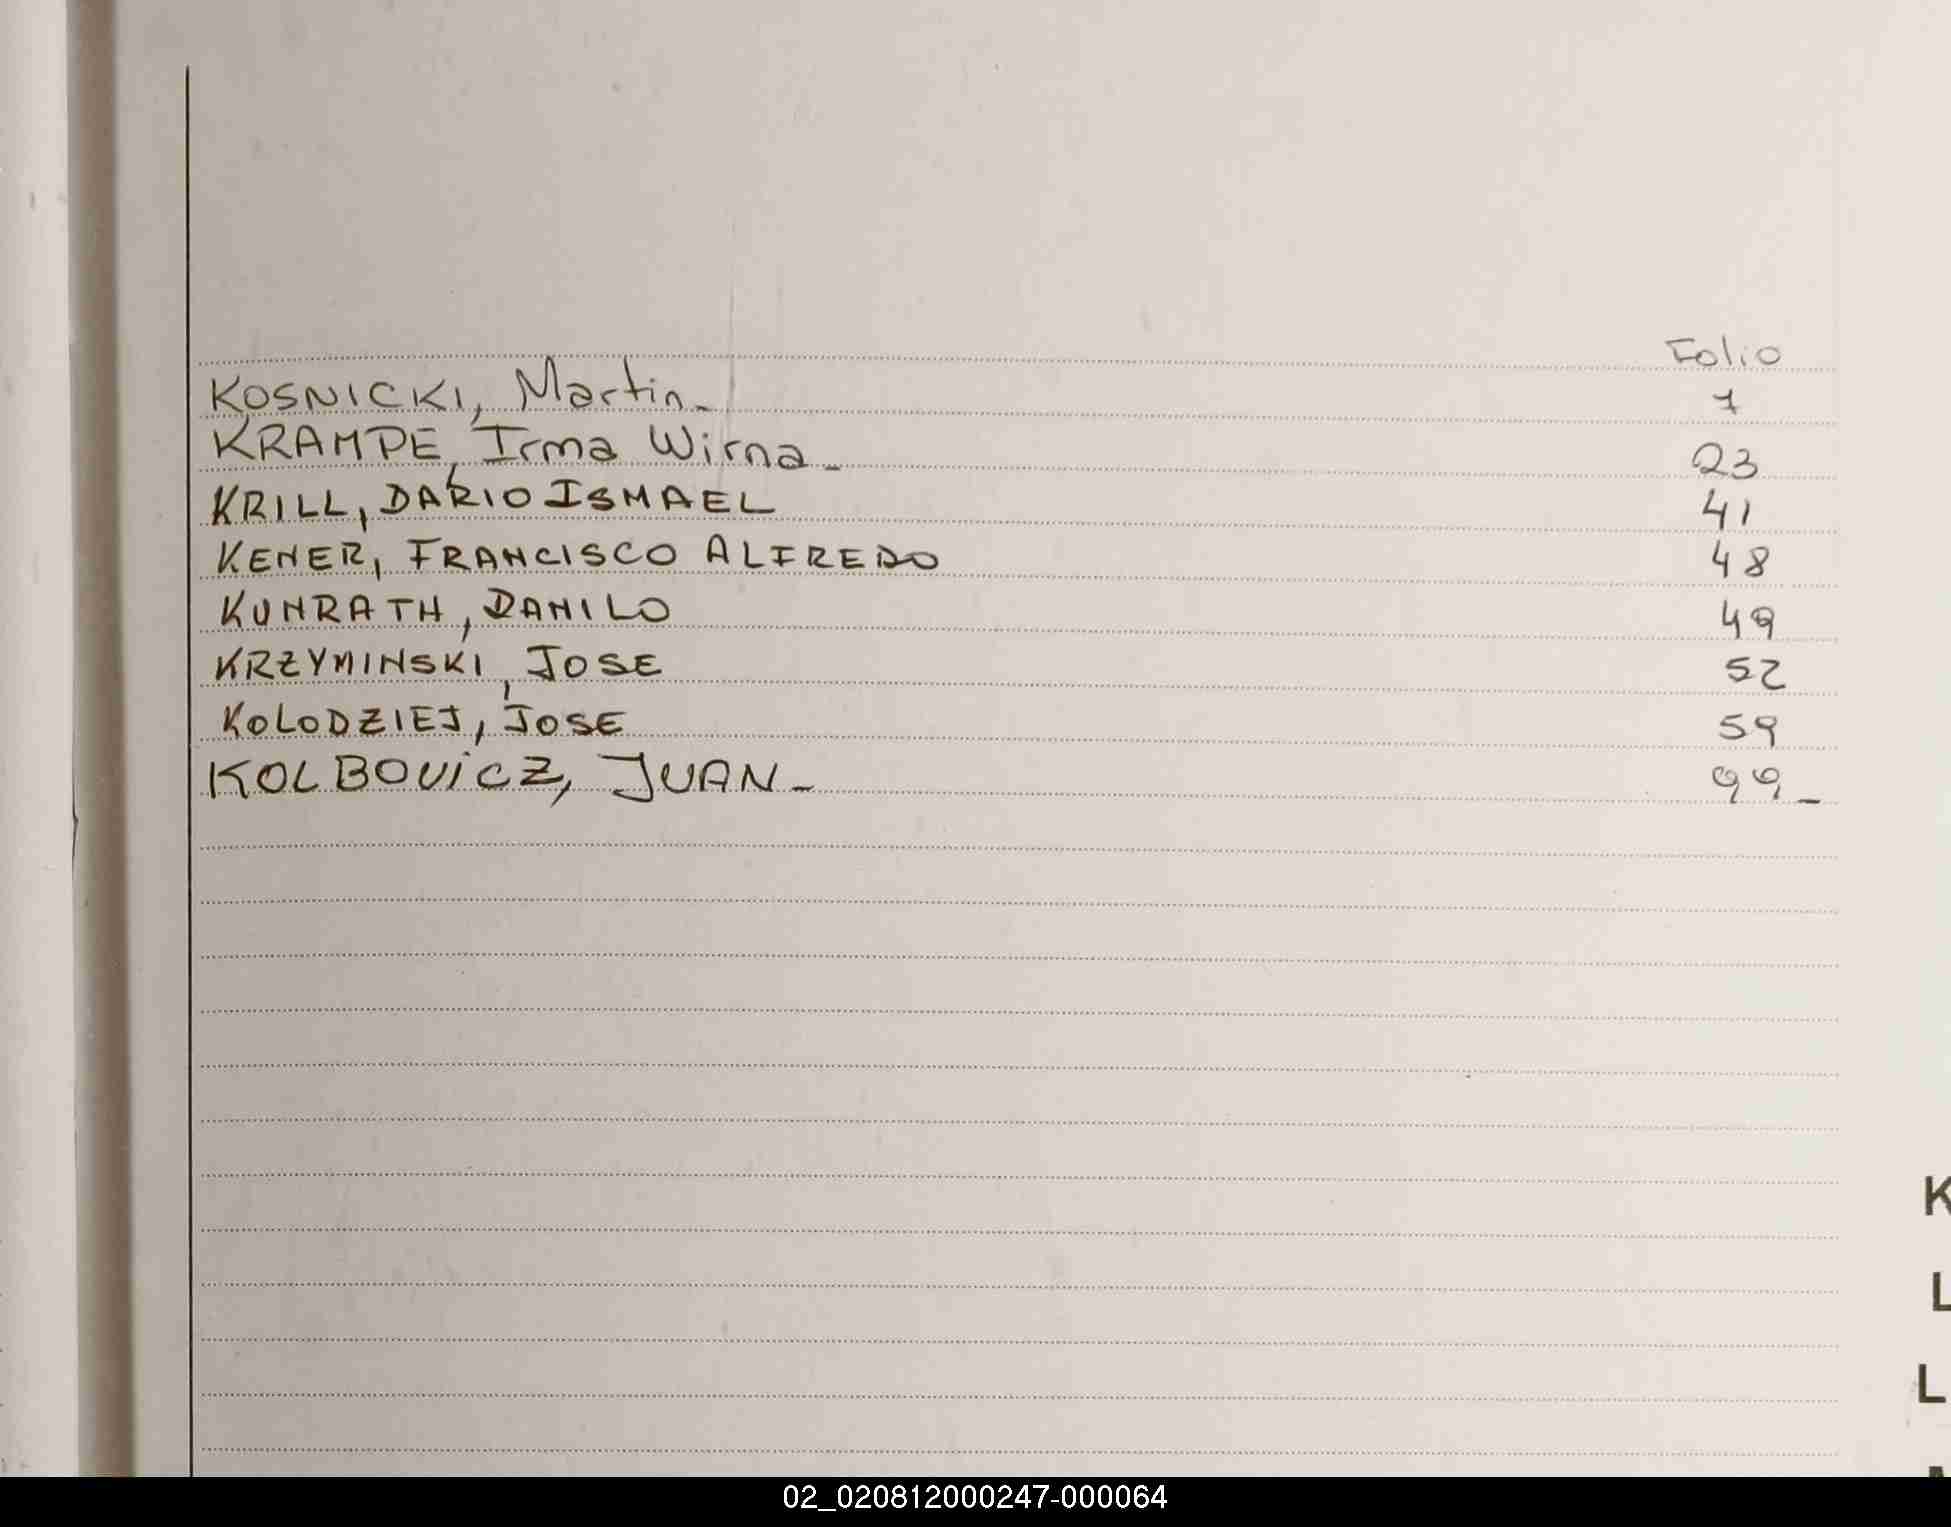 Folio
KOSNICKI, Martin_ 7
KRAMPE, Irma Wirna_ 23
KRILL, DARIO ISMAEL 41
KENER, FRANCISCO ALFREDO 48
KUNRATH, DANILO 49
KRZYMINSKI, JOSE 52
KOLODZIEJ, JOSE 59
KOLBOVICZ, JUAN_ 99_
K
L
L
02_020812000247-000064